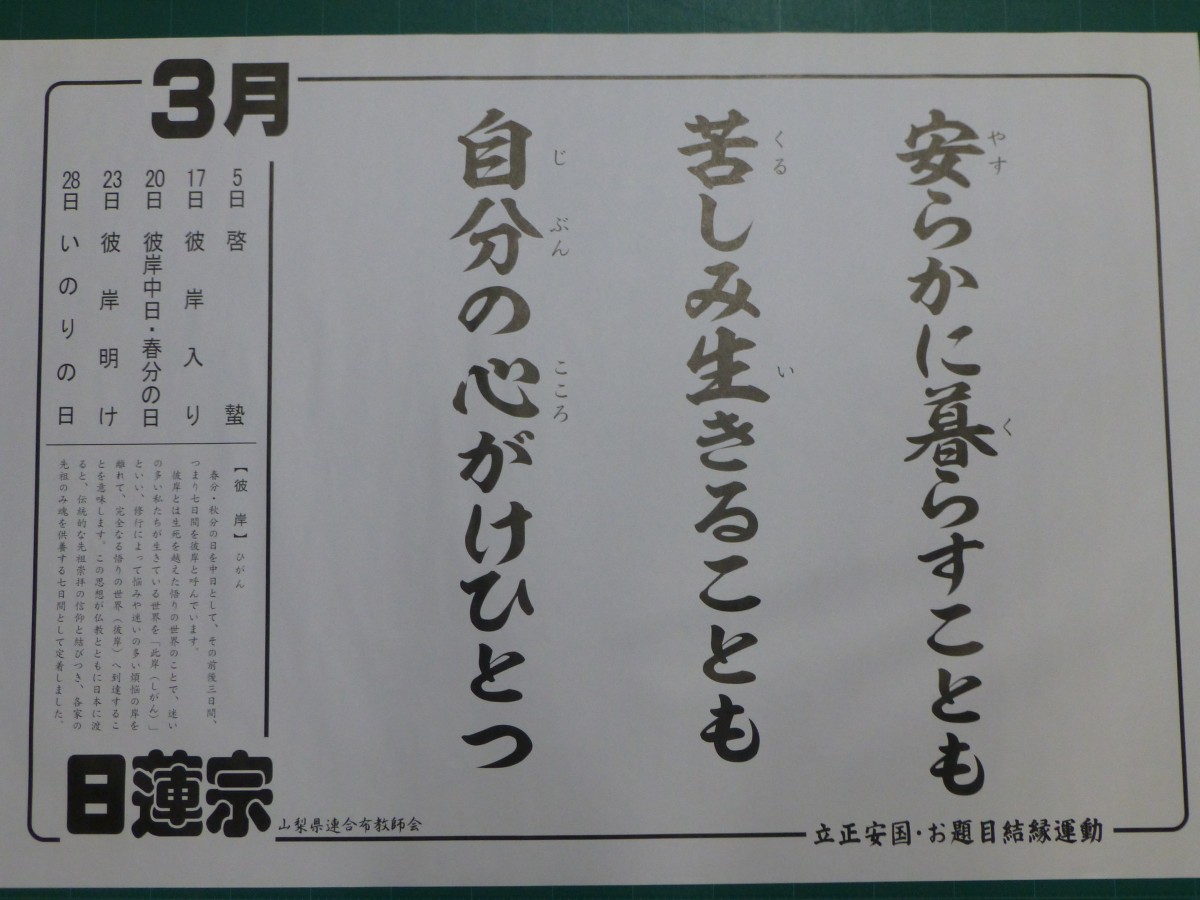 安らかに暮らすことも
やす
く
苦しみ生きることも
くる
い
自分の心がけひとつ
じ
ぶん
こころ
3月
5日 啓蟄
17日 彼岸入り
20日 彼岸中日・春分の日
23日 彼岸明け
28日 いのりの日
【彼岸】ひがん
春分・秋分の日を中日として、その前後三日間、
つまり七日間を彼岸と呼んでいます。
彼岸とは生死を越えた悟りの世界のことで、迷い
の多い私たちが生きている世界を「此岸(しがん)」
といい、修行によって悩みや迷いの多い煩悩の岸を
離れて、完全なる悟りの世界(彼岸)へ到達するこ
とを意味します。この思想が仏教とともに日本に渡
ると、伝統的な先祖崇拝の信仰と結びつき、各家の
先祖のみ魂を供養する七日間として定着しました。
日蓮宗
山梨県連合布教師会
立正安国・お題目結縁運動